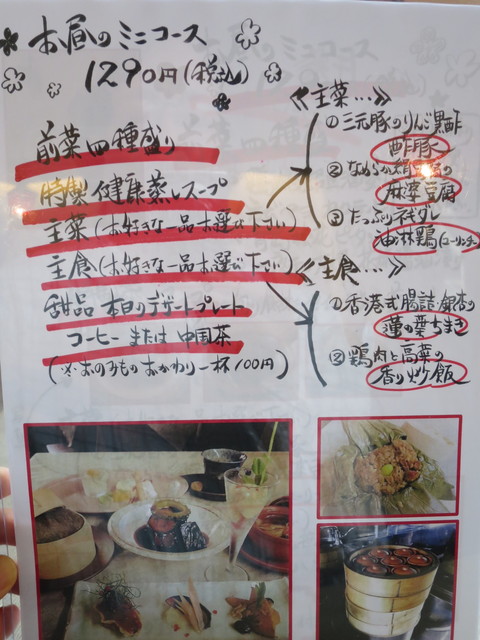 お昼のミニコース
1290円(税込)
前菜四種盛り
特製健康蒸しスープ
主菜(お好きな一品お選び下さい)
主食(お好きな一品お選び下さい)
甜品 本日のデザートプレート
コーヒー または 中国茶
(※おのみもの おかわり一杯100円)
《主菜…》
①三元豚のりんご黒酢
酢豚
②なめらか絹豆腐の
麻婆豆腐
③たっぷりネギダレ
油淋鶏(ユーリンチー)
《主食…》
①香港式腸詰・銀杏の
蓮の葉ちまき
②鶏肉と高菜の
香り炒飯